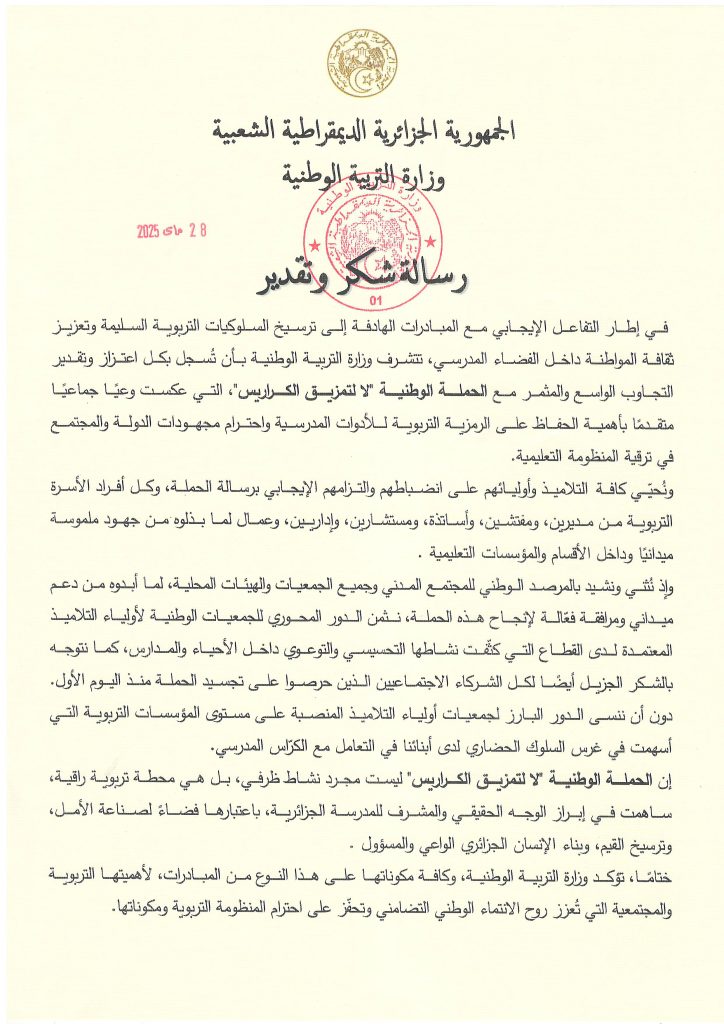 الجمهورية الجزائرية الديمقراطية الشعبية
وزارة التربية الوطنية
وزارة التربية الوطنية
الجزائرية الديمقراطية
28 ماي 2025
01
رسالة شكر وتقدير
في إطار التفاعل الإيجابي مع المبادرات الهادفة إلى ترسيخ السلوكيات التربوية السليمة وتعزيز
ثقافة المواطنة داخل الفضاء المدرسي، تتشرف وزارة التربية الوطنية بأن تُسجل بكل اعتزاز وتقدير
التجاوب الواسع والمثمر مع الحملة الوطنية "لا لتمزيق الكراريس"، التي عكست وعيًا جماعيًا
متقدمًا بأهمية الحفاظ على الرمزية التربوية للأدوات المدرسية واحترام مجهودات الدولة والمجتمع
في ترقية المنظومة التعليمية.
ونُحيّي كافة التلاميذ وأوليائهم على انضباطهم والتزامهم الإيجابي برسالة الحملة، وكل أفراد الأسرة
التربوية من مديرين، ومفتشين، وأساتذة، ومستشارين، وإداريين، وعمال لما بذلوه من جهود ملموسة
ميدانيًا وداخل الأقسام والمؤسسات التعليمية .
وإذ نُثني ونشيد بالمرصد الوطني للمجتمع المدني وجميع الجمعيات والهيئات المحلية، لما أبدوه من دعم
ميداني ومرافقة فعّالة لإنجاح هذه الحملة، نثمن الدور المحوري للجمعيات الوطنية لأولياء التلاميذ
المعتمدة لدى القطاع التي كثّفت نشاطها التحسيسي والتوعوي داخل الأحياء والمدارس، كما نتوجه
بالشكر الجزيل أيضًا لكل الشركاء الاجتماعيين الذين حرصوا على تجسيد الحملة منذ اليوم الأول.
دون أن ننسى الدور البارز لجمعيات أولياء التلاميذ المنصبة على مستوى المؤسسات التربوية التي
أسهمت في غرس السلوك الحضاري لدى أبنائنا في التعامل مع الكرّاس المدرسي.
إن الحملة الوطنية "لا لتمزيق الكراريس" ليست مجرد نشاط ظرفي، بل هي محطة تربوية راقية،
ساهمت في إبراز الوجه الحقيقي والمشرف للمدرسة الجزائرية، باعتبارها فضاءً لصناعة الأمل،
وترسيخ القيم، وبناء الإنسان الجزائري الواعي والمسؤول .
ختامًا، تؤكد وزارة التربية الوطنية، وكافة مكوناتها على هذا النوع من المبادرات، لأهميتها التربوية
والمجتمعية التي تُعزز روح الانتماء الوطني التضامني وتحفّز على احترام المنظومة التربوية ومكوناتها.